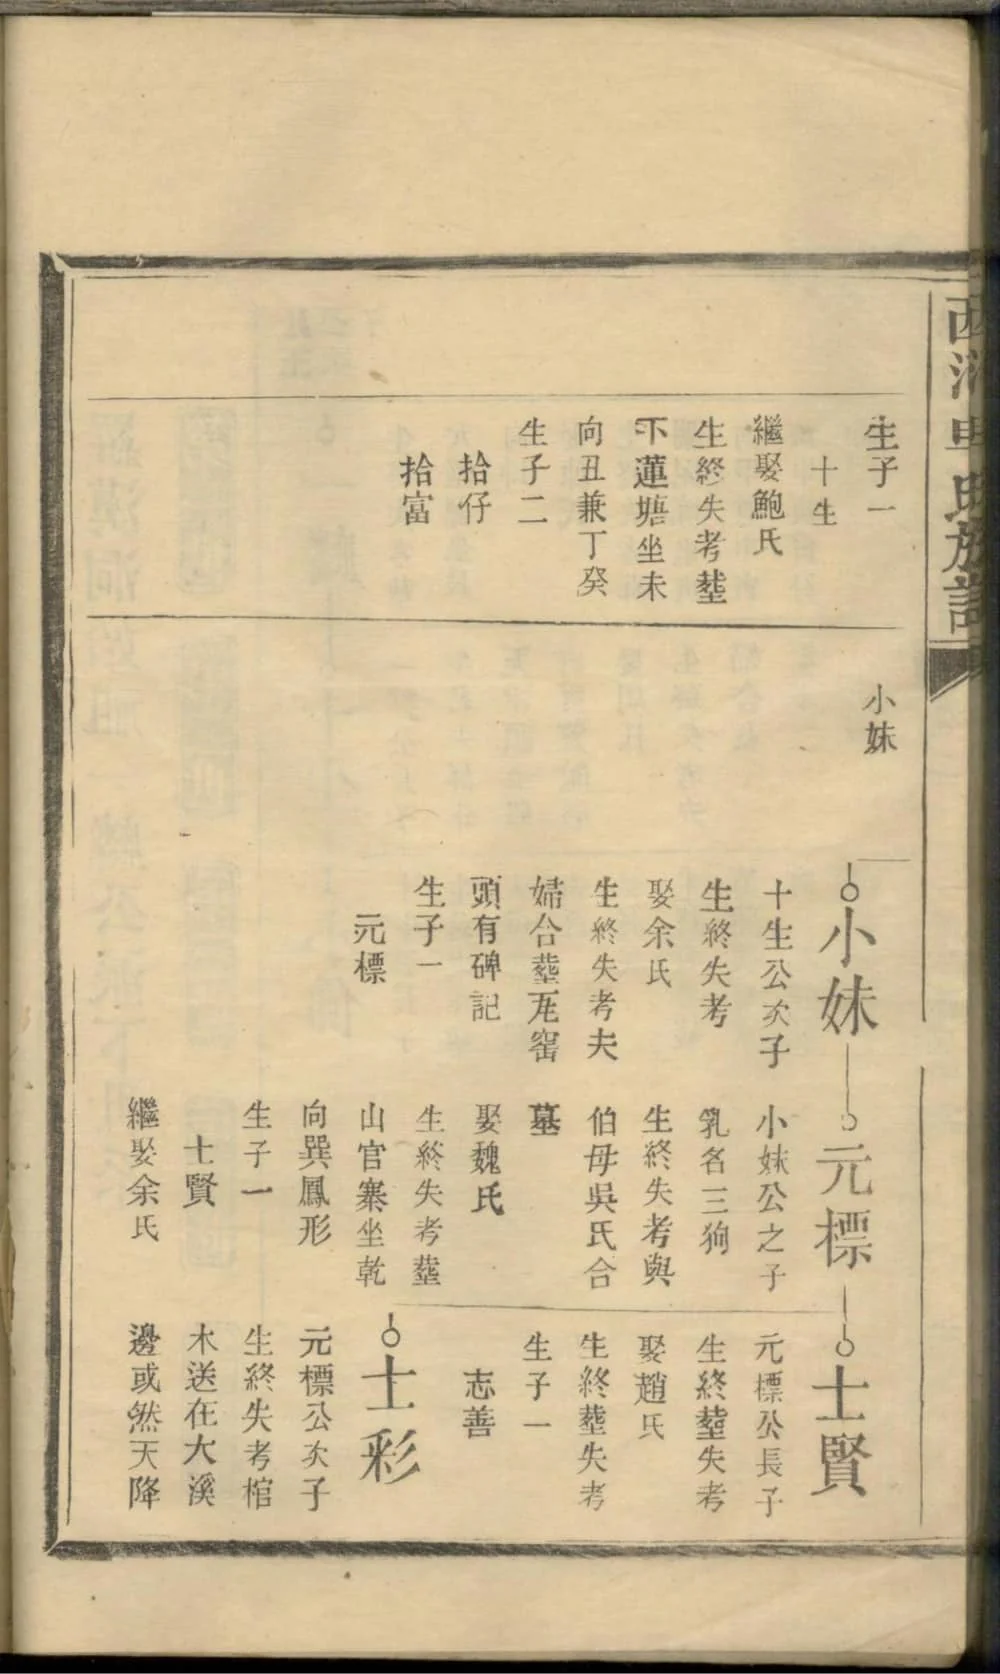 氏族譜
生子一
十生
繼娶鮑氏
生終失考塟
下蓮塘坐未
向丑兼丁癸
生子二
拾仔
拾富
小妹
小妹
十生公次子
生終失考
娶余氏
生終失考夫
婦合塟瓦窑
頭有碑記
生子一
元標
元標
小妹公之子
乳名三狗
生終失考與
伯母吳氏合
墓
娶魏氏
生終失考塟
山官寨坐乾
向巽鳳形
生子一
士賢
繼娶余氏
士賢
元標公長子
生終塟失考
娶趙氏
生終塟失考
生子一
志善
士彩
元標公次子
生終失考棺
木送在大溪
邊或然天降